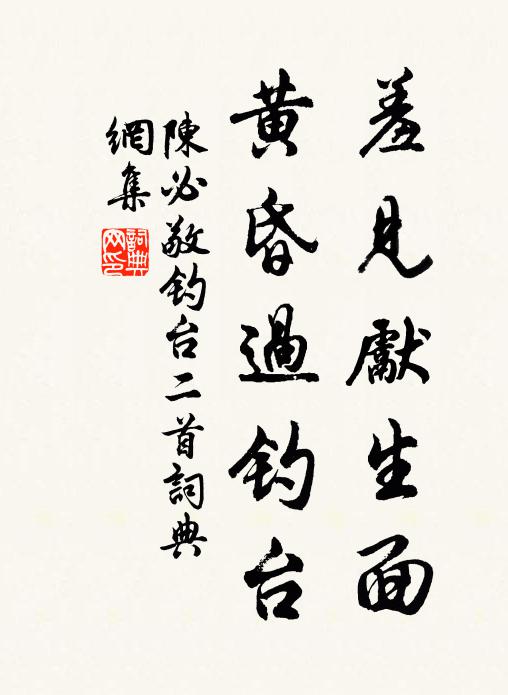 羞見獻生面
黄昏過钓台
陳必敬钓台二首詞典
網集
詞典
网印